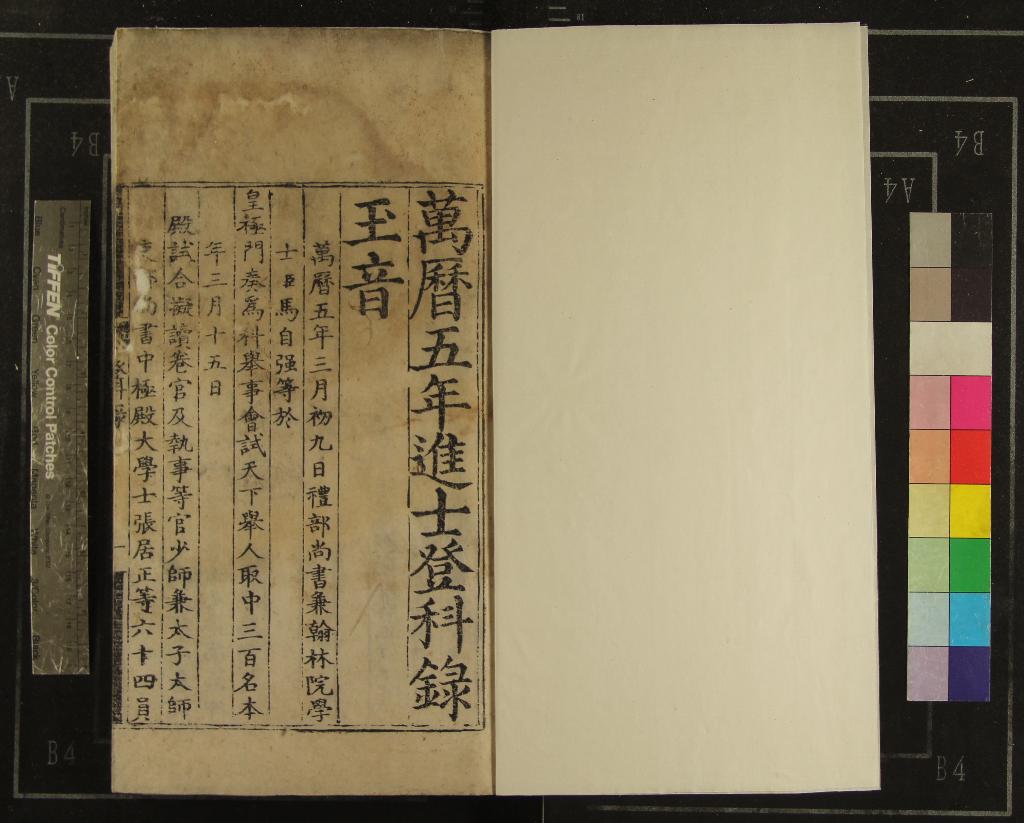 萬曆五年進士登科錄
玉音
萬曆五年三月初九日禮部尚書兼翰林院學
士臣馬自强等於
皇極門奏爲科舉事會試天下舉人取中三百名本
年三月十五日
殿試合擬讀卷官及執事等官少師兼太子太師
吏部尚書中極殿大學士張居正等六十四員
一
TIFFEN Color Control Patches
B4
B4
A4
A
B4
B4